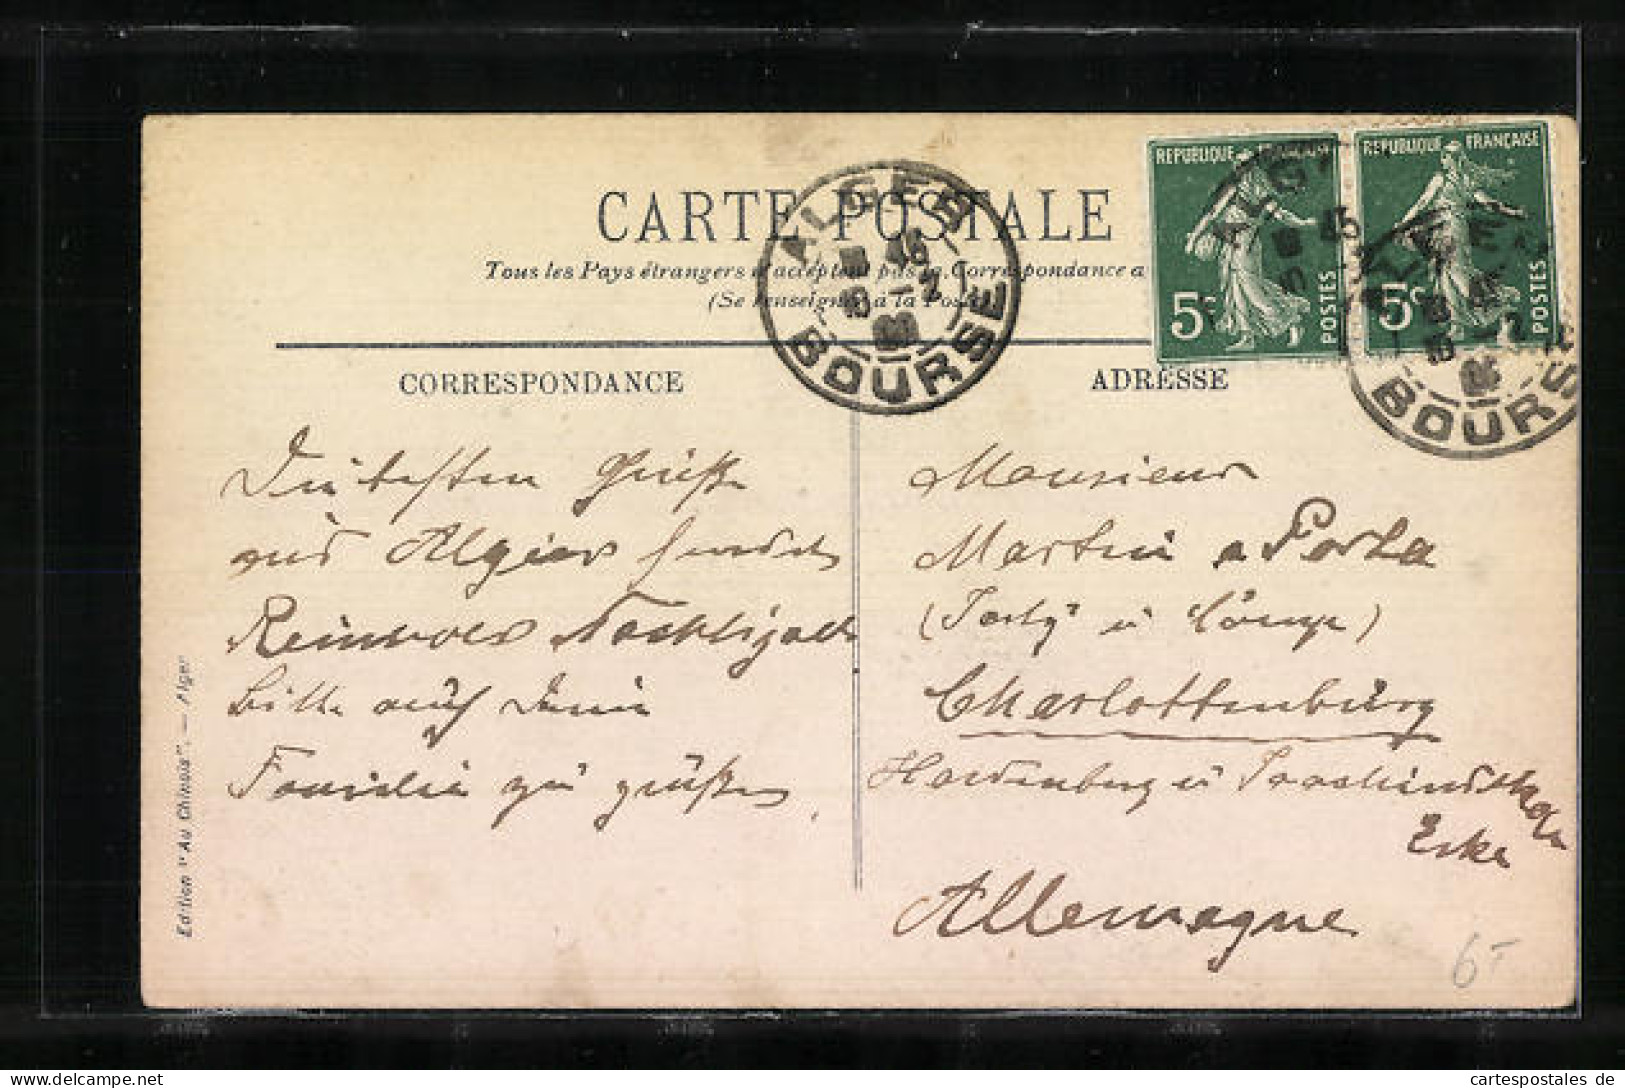 CARTE POSTALE
Tous les Pays étrangers n'acceptent pas la Correspondance a
(Se renseigner à la Poste)
ALGER
BOURSE
REPUBLIQUE FRANÇAISE
5c POSTES
REPUBLIQUE FRANÇAISE
5c POSTES
ALGER
BOURSE
CORRESPONDANCE
ADRESSE
Die besten Grüße
aus Algier sendet
Reinhold Nachtigall
bitte auch Deine
Familie zu grüßen.
Monsieur
Martin a Porta
Charlottenburg
Hardenberg u
Ecke
Allemagne
6-
Edition "Au Chinois". — Alger
cartespostales de